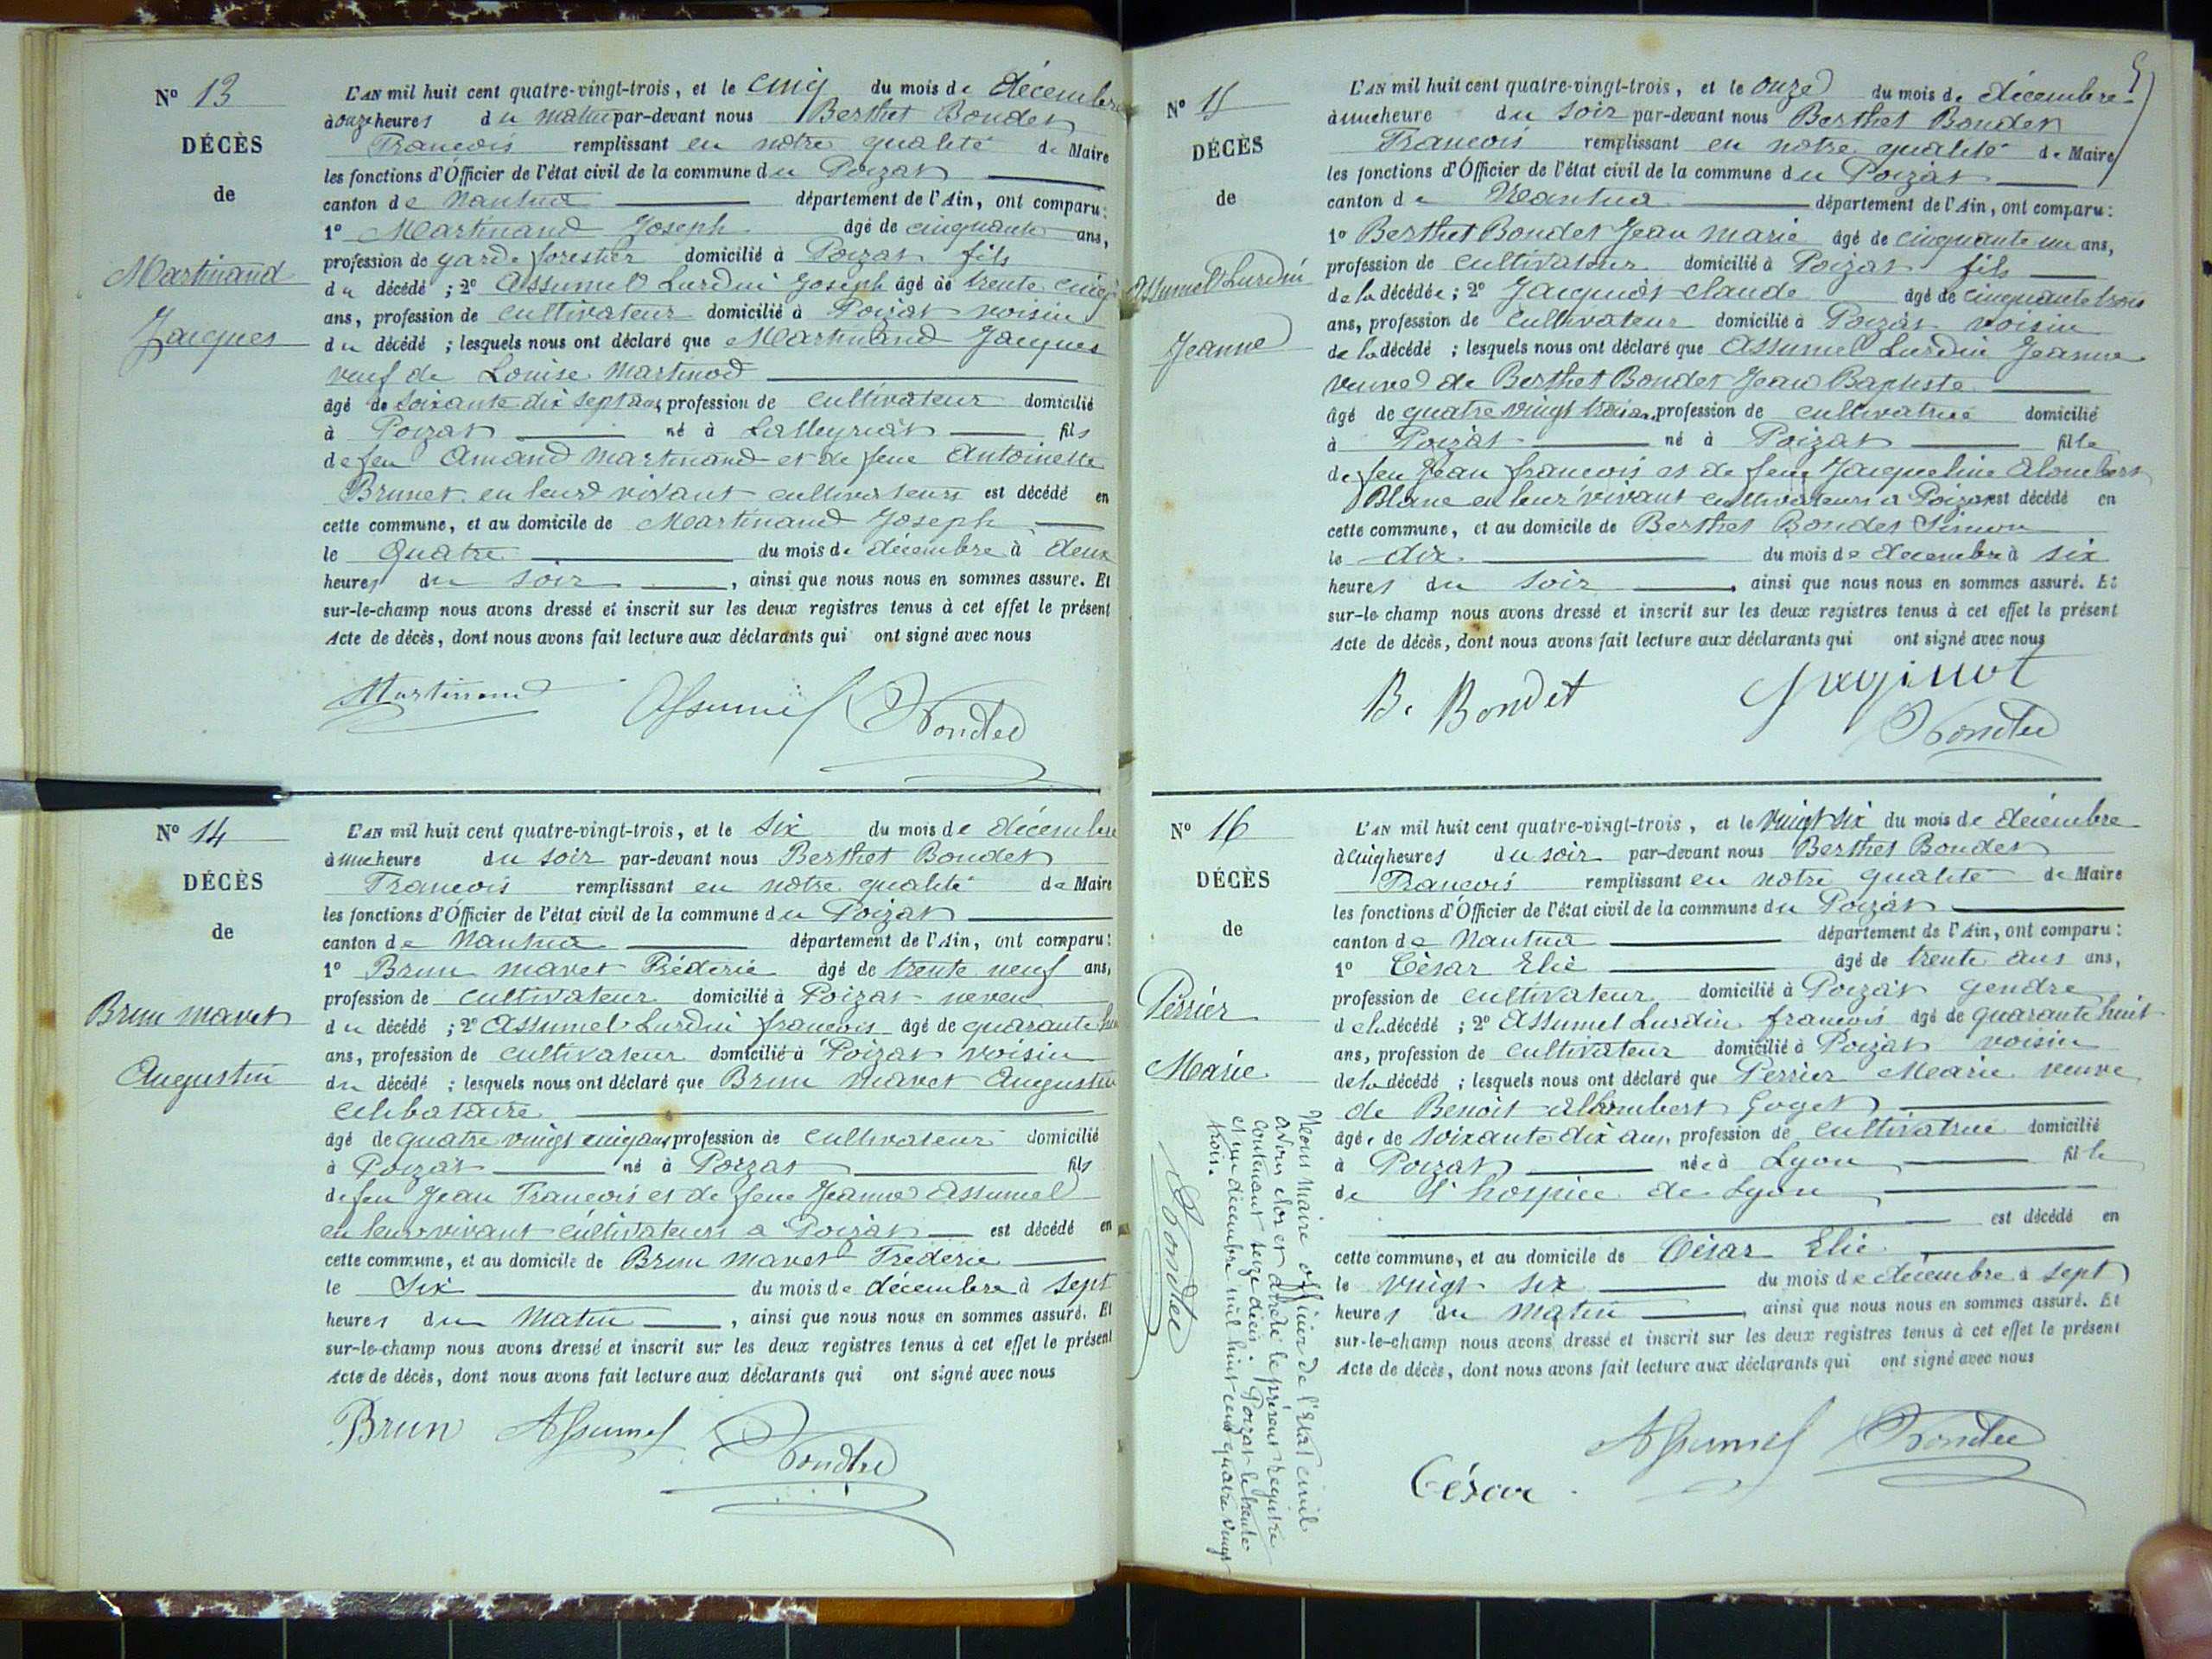 N° 13
DÉCÈS
de
Martinand
Jacques
L'AN mil huit cent quatre-vingt-trois, et le cinq du mois de décembre
à onze heures du matin par-devant nous Berthet Bondet
François remplissant en notre qualité de Maire
les fonctions d'Officier de l'état civil de la commune du Poizat
canton de Nantua département de l'Ain, ont comparu:
1° Martinand Joseph âgé de cinquante ans,
profession de garde forestier domicilié à Poizat fils
du décédé ; 2° Assumel Lurdin Joseph âgé de trente cinq
ans, profession de cultivateur domicilié à Poizat voisin
du décédé ; lesquels nous ont déclaré que Martinand Jacques
veuf de Louise Martinod
âgé de soixante dix sept ans, profession de cultivateur domicilié
à Poizat né à Lalleyriat fils
de feu Amand Martinand et de feue Antoinette
Brunet en leur vivant cultivateurs est décédé en
cette commune, et au domicile de Martinand Joseph
le Quatre du mois de décembre à deux
heures du soir, ainsi que nous nous en sommes assuré. Et
sur-le-champ nous avons dressé et inscrit sur les deux registres tenus à cet effet le présent
Acte de décès, dont nous avons fait lecture aux déclarants qui ont signé avec nous
Martinand Assumel Bondet
N° 14
DÉCÈS
de
Brun mavet
Augustin
L'AN mil huit cent quatre-vingt-trois, et le Six du mois de décembre
à une heure du soir par-devant nous Berthet Bondet
François remplissant en notre qualité de Maire
les fonctions d'Officier de l'état civil de la commune du Poizat
canton de Nantua département de l'Ain, ont comparu:
1° Brun mavet Fréderic âgé de trente neuf ans,
profession de cultivateur domicilié à Poizat neveu
du décédé ; 2° Assumel Lurdin françois âgé de quarante huit
ans, profession de cultivateur domicilié à Poizat voisin
du décédé ; lesquels nous ont déclaré que Brun Mavet Augustin
célibataire
âgé de quatre vingt cinq ans profession de cultivateur domicilié
à Poizat né à Poizat fils
de feu Jean François et de feue Jeanne Assumel
en leur vivant cultivateurs à Poizat est décédé en
cette commune, et au domicile de Brun Mavet Fréderic
le Six du mois de décembre à sept
heures du matin, ainsi que nous nous en sommes assuré. Et
sur-le-champ nous avons dressé et inscrit sur les deux registres tenus à cet effet le présent
Acte de décès, dont nous avons fait lecture aux déclarants qui ont signé avec nous
Brun Assumel Bondet
N° 15
DÉCÈS
de
Assumel Lurdin
Jeanne
L'AN mil huit cent quatre-vingt-trois, et le onze du mois de décembre
à une heure du soir par-devant nous Berthet Bondet
François remplissant en notre qualité de Maire
les fonctions d'Officier de l'état civil de la commune du Poizat
canton de Nantua département de l'Ain, ont comparu:
1° Berthet Bondet Jean marie âgé de cinquante un ans,
profession de cultivateur domicilié à Poizat fils
de la décédée ; 2° Jacquiot Claude âgé de cinquante trois
ans, profession de cultivateur domicilié à Poizat voisin
de la décédé ; lesquels nous ont déclaré que Assumel Lurdin Jeanne
veuve de Berthet Bondet Jean Baptiste
âgé de quatre vingt trois ans, profession de cultivatrice domicilié
à Poizat né à Poizat fille
de feu Jean françois et de feue Jacqueline Alombert
Blanc en leur vivant cultivateurs à Poizat est décédé en
cette commune, et au domicile de Berthet Bondet Simon
le dix du mois de décembre à six
heures du soir, ainsi que nous nous en sommes assuré. Et
sur-le-champ nous avons dressé et inscrit sur les deux registres tenus à cet effet le présent
Acte de décès, dont nous avons fait lecture aux déclarants qui ont signé avec nous
B. Bondet Jaquiot
Bondet
N° 16
DÉCÈS
de
Perrier
Marie
L'AN mil huit cent quatre-vingt-trois, et le vingt six du mois de décembre
à cinq heures du soir par-devant nous Berthet Bondet
François remplissant en notre qualité de Maire
les fonctions d'Officier de l'état civil de la commune du Poizat
canton de Nantua département de l'Ain, ont comparu:
1° César Elie âgé de trente ans ans,
profession de cultivateur domicilié à Poizat gendre
de la décédé ; 2° Assumel Lurdin françois âgé de quarante huit
ans, profession de cultivateur domicilié à Poizat voisin
de la décédé ; lesquels nous ont déclaré que Perrier Marie veuve
de Benoit Allombert Goget
âgée de soixante dix ans, profession de cultivatrice domicilié
à Poizat née à Lyon fille
de l'hospice de Lyon
est décédé en
cette commune, et au domicile de César Elie
le vingt six du mois de décembre à sept
heures du matin, ainsi que nous nous en sommes assuré. Et
sur-le-champ nous avons dressé et inscrit sur les deux registres tenus à cet effet le présent
Acte de décès, dont nous avons fait lecture aux déclarants qui ont signé avec nous
Assumel Bondet
César
Nous Maire officier de l'Etat civil
avons clos et arrêté le présent registre
contenant seize décès. Poizat le trente
et un décembre mil huit cent quatre vingt
trois.
Bondet